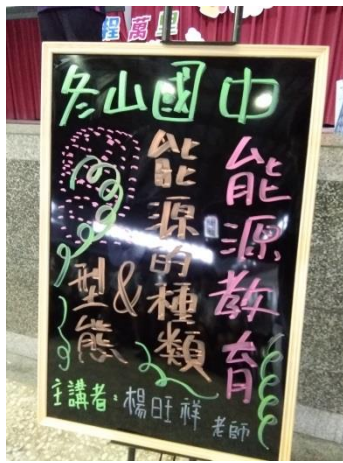 程萬里
冬山國中
能源教育
能源的種類
&型態
主講者：楊旺祥老師